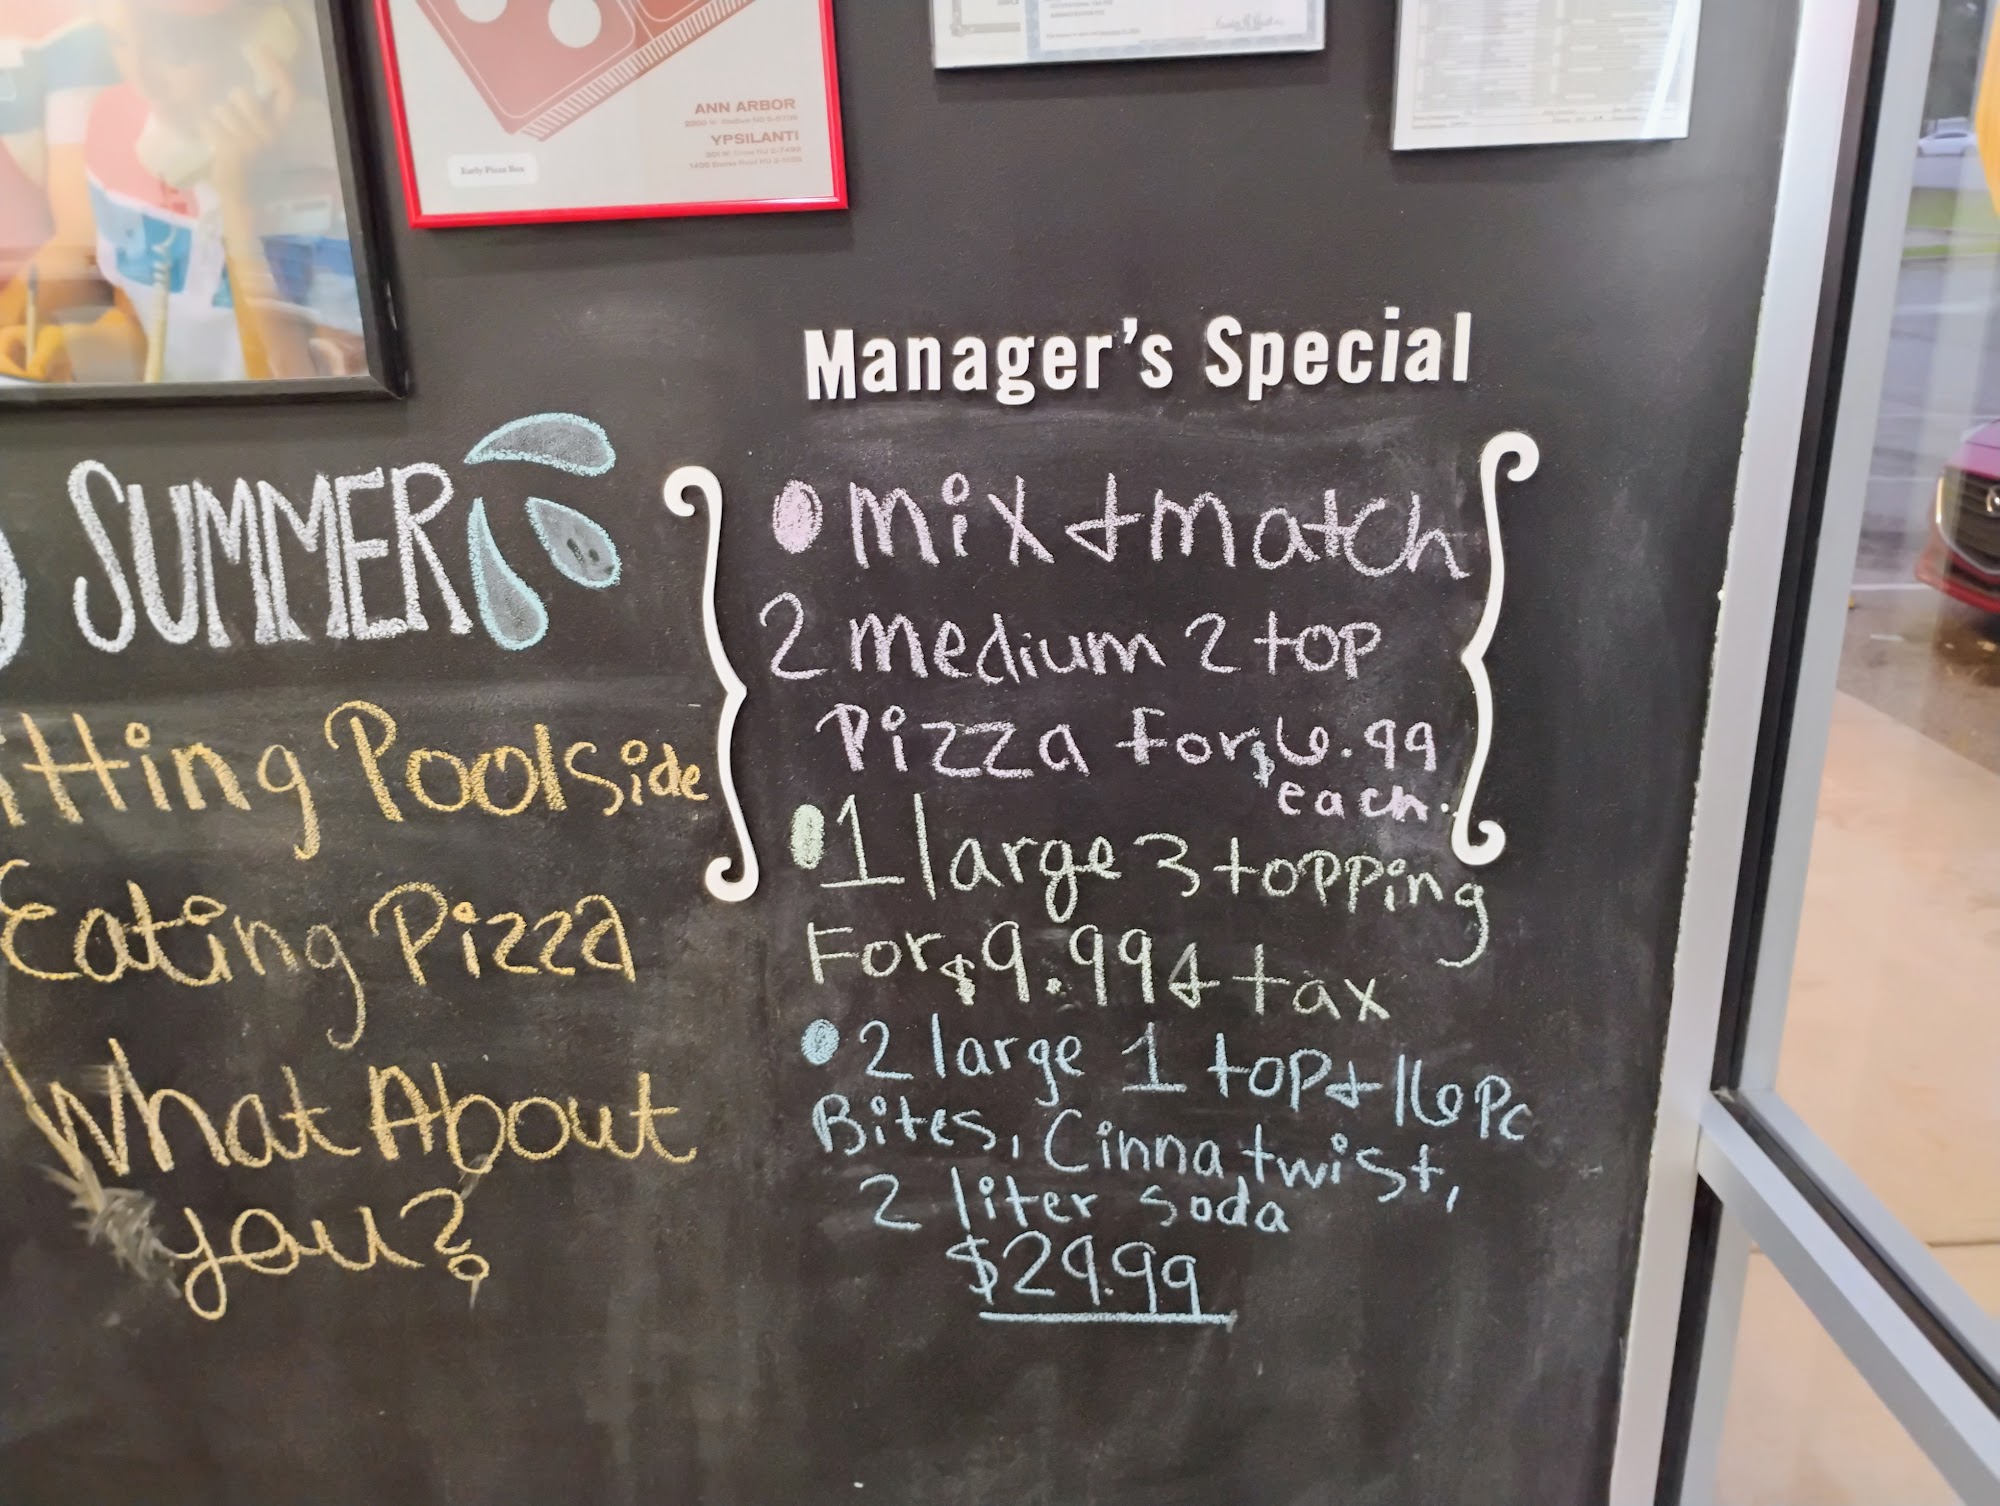 ANN ARBOR
YPSILANTI
Early Pizza Box
Manager's Special
SUMMER
itting Poolside
Eating Pizza
What About
you?
mix + match
2 medium 2 top
Pizza for $6.99
each.
1 large 3 topping
For $9.99 + tax
2 large 1 top + 16 Pc
Bites, Cinna twist,
2 liter soda
$29.99